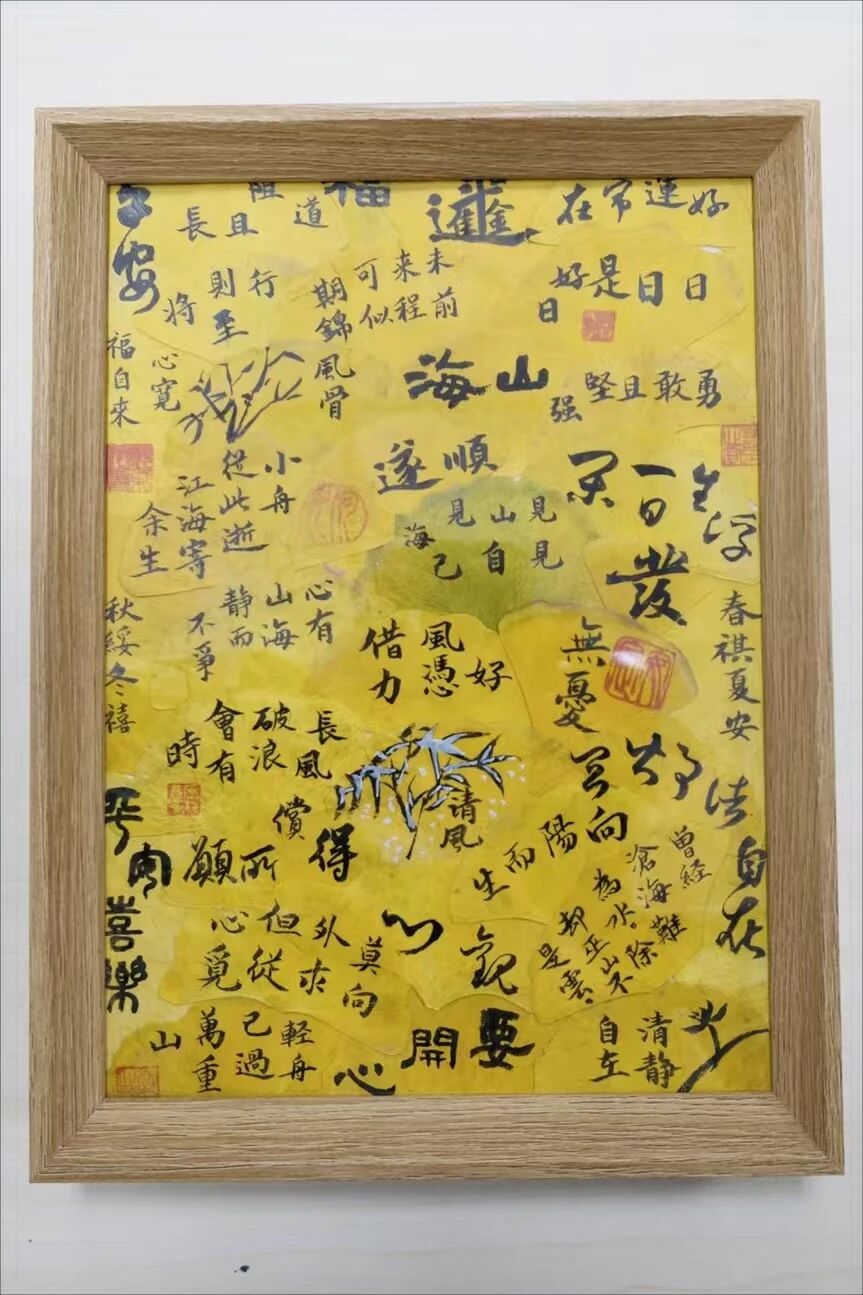 好運常在
道阻且長
行則將至
福
未來可期
前程似錦
風骨
日日是好日
山海
勇敢且堅强
心寬福自來
順遂
小舟從此逝
江海寄餘生
見山見海見自己
浮生一日
發
無憂
心有山海
靜而不爭
好風憑借力
春祺夏安
秋綏冬禧
長風破浪會有時
清風
得償所願
向陽而生
曾經滄海難為水
除却巫山不是雲
自在
平安喜樂
莫向外求
但從心覓
觀心
輕舟已過萬重山
要開心
清靜自在